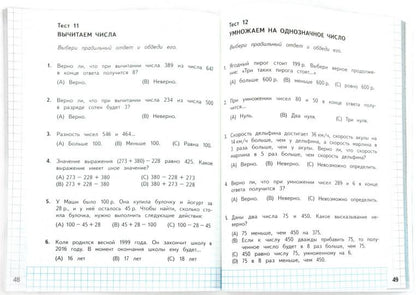 Тест 11
ВЫЧИТАЕМ ЧИСЛА
Выбери правильный ответ и обведи его.
1. Верно ли, что при вычитании числа 389 из числа 647
в конце ответа получится 8?
(A) Верно. (B) Неверно.
2. Верно ли, что при вычитании числа 234 из числа 500
в разряде сотен будет 3?
(A) Верно. (B) Неверно.
3. Разность чисел 546 и 464...
(A) Больше 100. (B) Меньше 100. (C) Равна 100.
4. Значение выражения (273 + 380) − 228 равно 425. Какое
выражение имеет иное значение?
(A) 273 − 228 + 380 (C) 380 − 228 + 273
(B) 273 + 380 − 228 (D) 380 + 273 + 228
5. У Маши было 100 р. Она купила булочку и йогурт за
28 р., и у неё осталось 45 р. Чтобы найти, сколько стоила
булочка, нужно выполнить следующие действия:
(A) 100 − 45 + 28 (B) 100 − 45 − 28 (C) 100 + 28 − 45
6. Коля родился весной 1999 года. Он закончил школу в
2016 году. В момент окончания школы ему будет...
(A) 16 лет (B) 17 лет (C) 18 лет
48
Тест 12
УМНОЖАЕМ НА ОДНОЗНАЧНОЕ ЧИСЛО
Выбери правильный ответ и обведи его.
1. Ягодный пирог стоит 199 р. Выбери верное продолжение:
«Три таких пирога стоят...»
(A) больше 600 р. (B) меньше 600 р. (C) ровно 600 р.
2. При умножении чисел 80 и 50 в конце ответа
получится...
(A) Нуль. (B) Два нуля. (C) Три нуля.
3. Скорость дельфина достигает 36 км/ч, скорость акулы на
(A) Верно. (B) Неверно. (C) Невозможно определить.
4. Верно ли, что при умножении чисел 289 и 6 в конце
ответа получится 3?
(A) Верно. (B) Неверно. (C) Невозможно определить.
5. Даны два числа 75 и 450. Какое высказывание неверно?
(A) 75 меньше, чем 450, на 375.
(B) Если к числу 450 дважды прибавить 75, то полученное
число будет в 8 раз больше, чем 75.
(C) 450 равно числу 75, умноженному на 6.
(D) 75 в 8 раз меньше, чем 450.
49